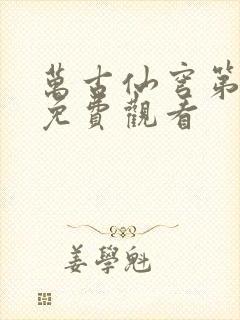 萬古仙穹第
免費觀看
姜學魁